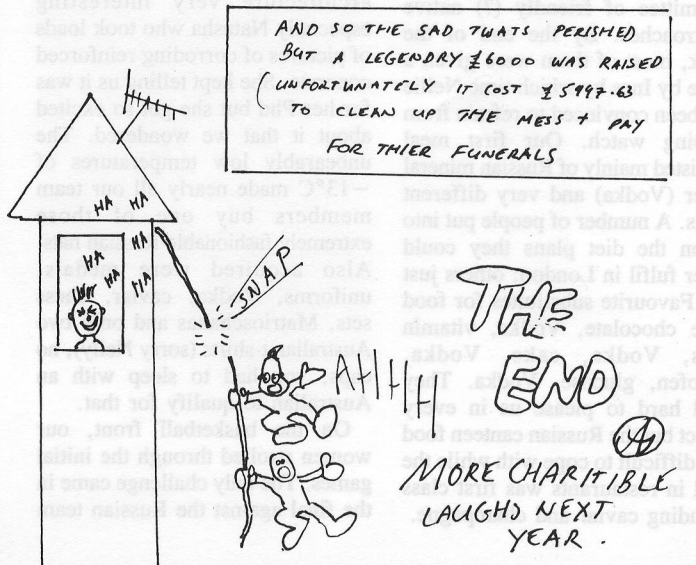 AND SO THE SAD TWATS PERISHED
BUT A LEGENDRY £6000 WAS RAISED
UNFORTUNATELY IT COST £5997.63
TO CLEAN UP THE MESS + PAY
FOR THIER FUNERALS
HA HA
HA
HA
HA
HA
SNAP
AHHH
THE
END
MORE CHARITIBLE
LAUGHS NEXT
YEAR.